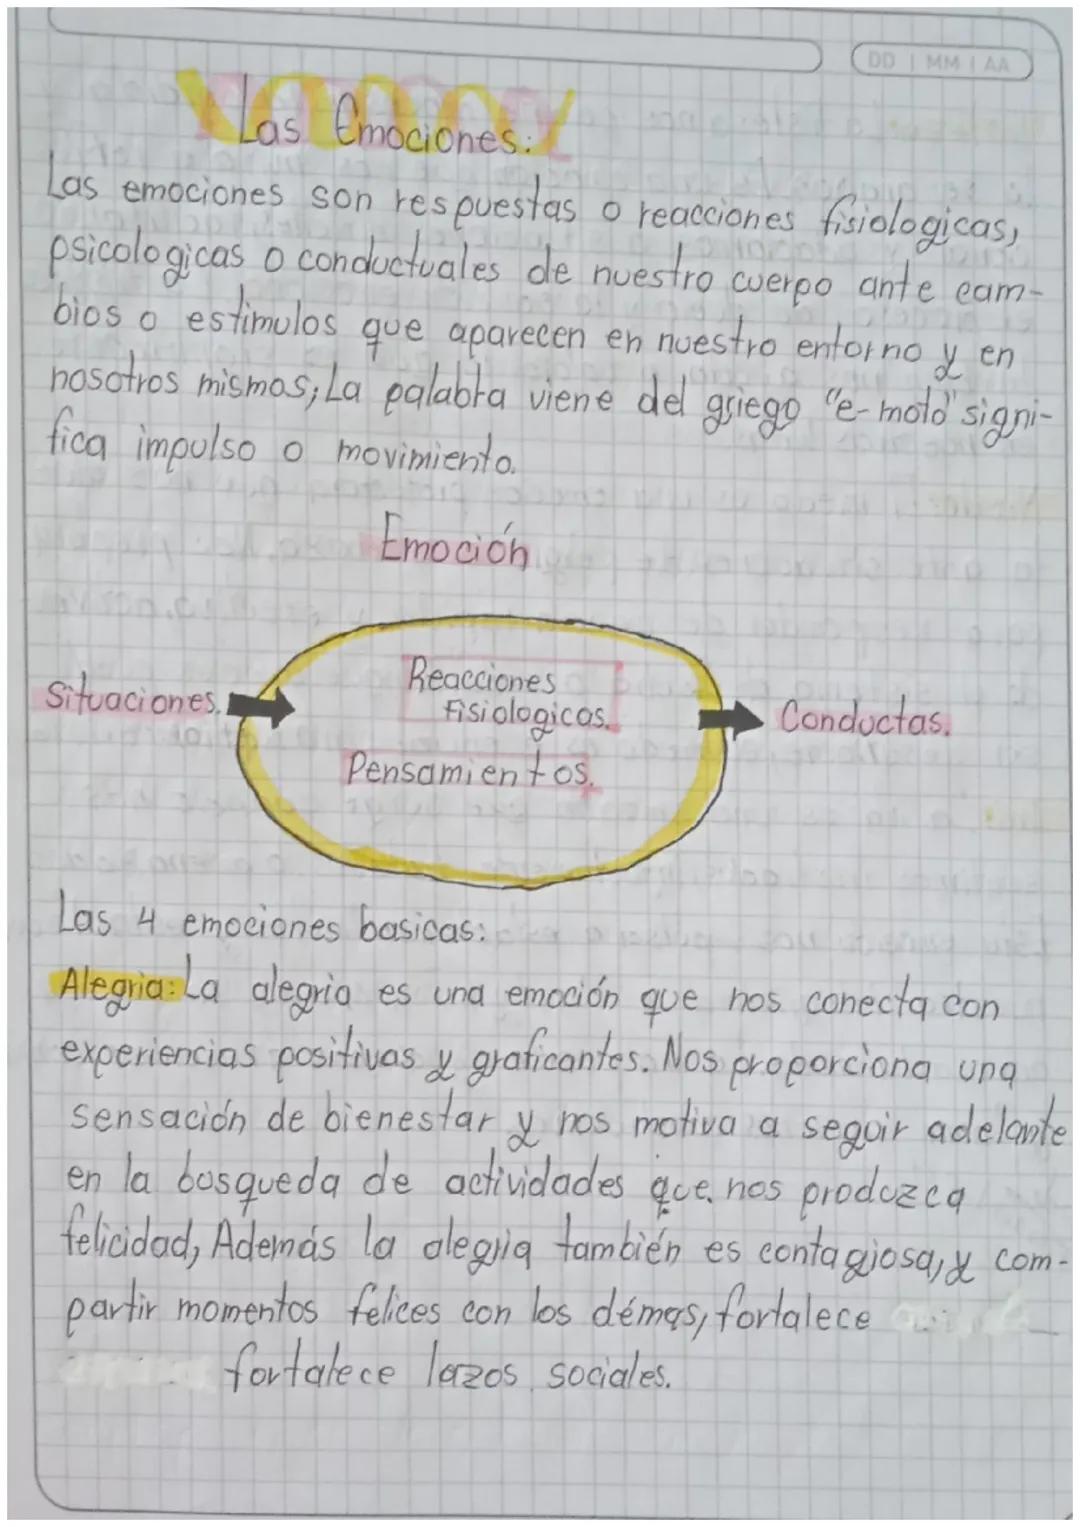 DD | MM | AA
Las Emociones:
Las emociones son respuestas o reacciones fisiologicas,
psicologicas o conductuales de nuestro cuerpo ante cam-
bios o estimulos que aparecen en nuestro entorno y en
nosotros mismos; La palabra viene del griego "e-moto" signi-
fica impulso o movimiento.
Emoción
Reacciones
fisiologicas.
Situaciones.
Conductas.
Pensamientos.
Las 4 emociones basicas:
Alegria: La alegria es una emoción que nos conecta con
experiencias positivas y graficantes. Nos proporciona una
sensación de bienestar y nos motiva a seguir adelante
en la busqueda de actividades que nos produzca
felicidad, Además la alegria también es contagiosa, y com-
partir momentos felices con los démas, fortalece
fortalece lazos sociales.